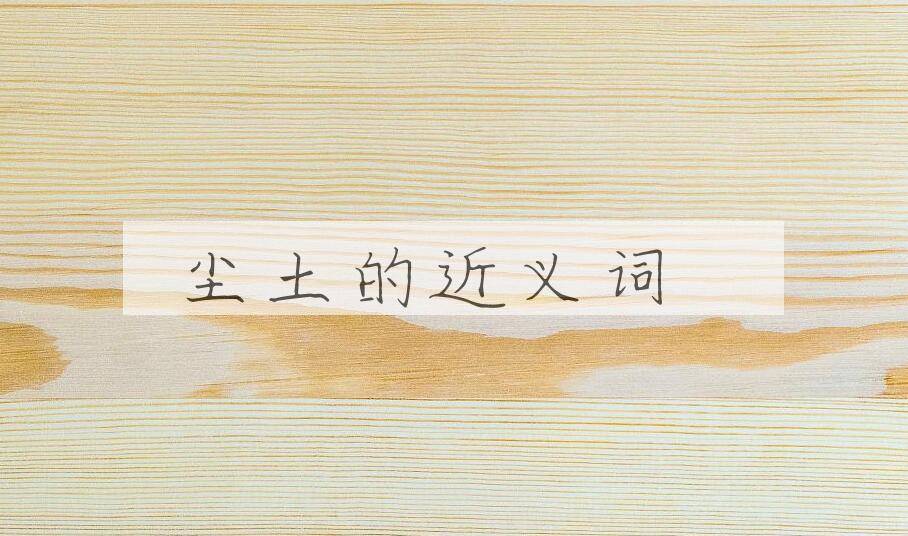 尘土的近义词